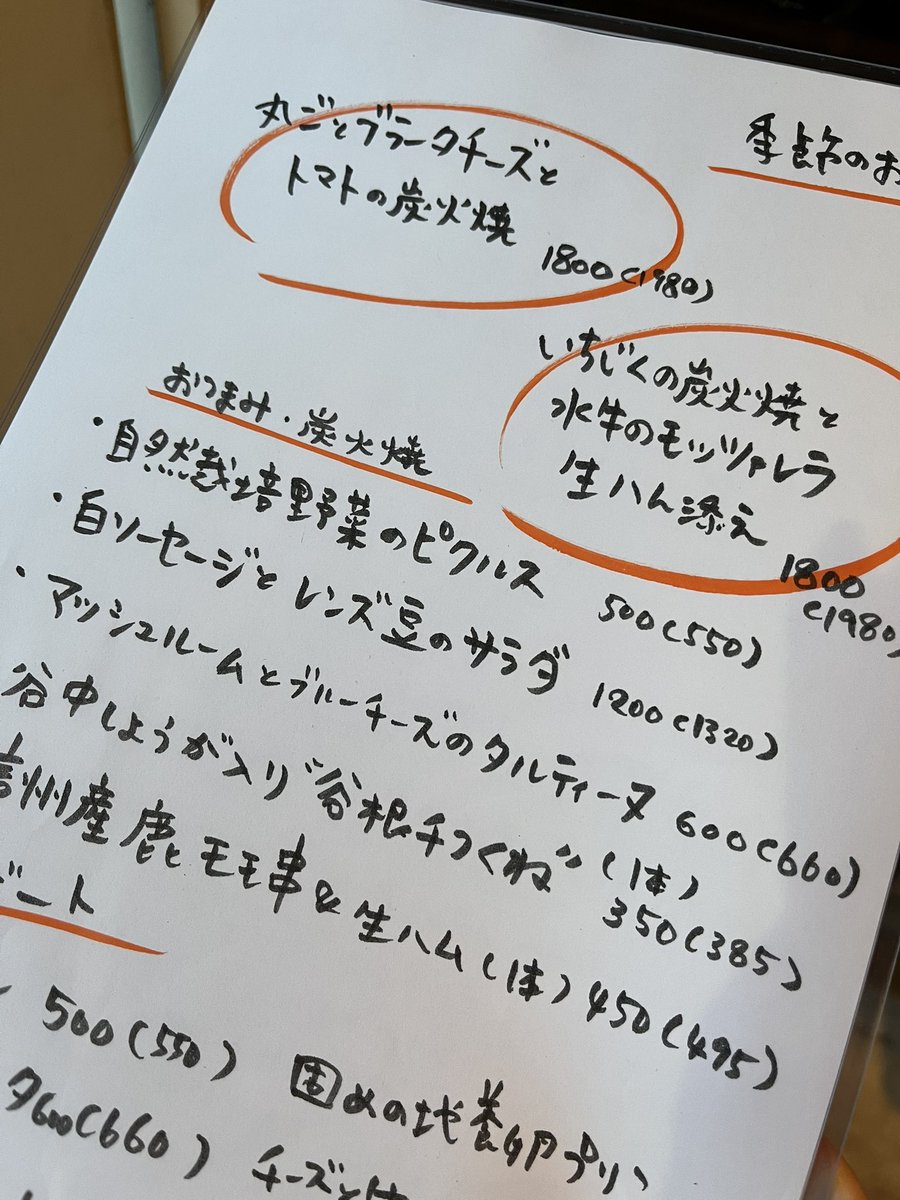 季節のお
丸ごとブラータチーズと
トマトの炭火焼
1800(1980)
いちじくの炭火焼と
水牛のモッツァレラ
生ハム添え
1800
(1980)
おつまみ・炭火焼
・自然栽培野菜のピクルス 500(550)
・白ソーセージとレンズ豆のサラダ 1200(1320)
・マッシュルームとブルーチーズのタルティーヌ 600(660)
谷中しょうが入り"谷根千つくね"(1本)
350(385)
信州産鹿モモ串&生ハム(1本) 450(495)
ート
500(550) 固めの地養卵プリン
タ600(660) チーズと